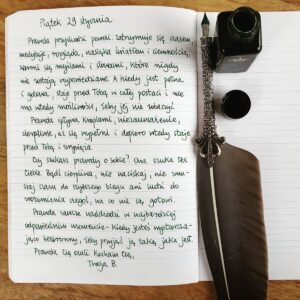 Piątek 29 stycznia
Prawda przychodzi powoli, zatrzymuje się czasem
medytuje, rozgląda, nasiąka światłem i ciemnością,
karmi się myślami i słowami, które nigdy
nie zostają wypowiedziane. A kiedy jest pełna
i gotowa, staje przed Tobą w całej postaci i nie
ma wtedy możliwości, żeby jej nie zobaczyć.
Prawda spływa kroplami, niezauważenie,
cierpliwie, aż się wypełni i dopiero wtedy staje
przed Tobą i
Czy szukasz prawdy o sobie? Ona szuka też
Ciebie. Bądź cierpliwa, nie naciskaj, nie zmu-
szaj czasu do szybszego biegu ani ludzi do
rozumienia czegoś, na co nie są gotowi.
Prawda zawsze nadchodzi w najbardziej
odpowiednim momencie - kiedy jesteś wystarcza-
jąco bezbronny, żeby przyjąć ją taką, jaka jest.
Prawda Cię ocali. Kocham Cię,
Twoja B.